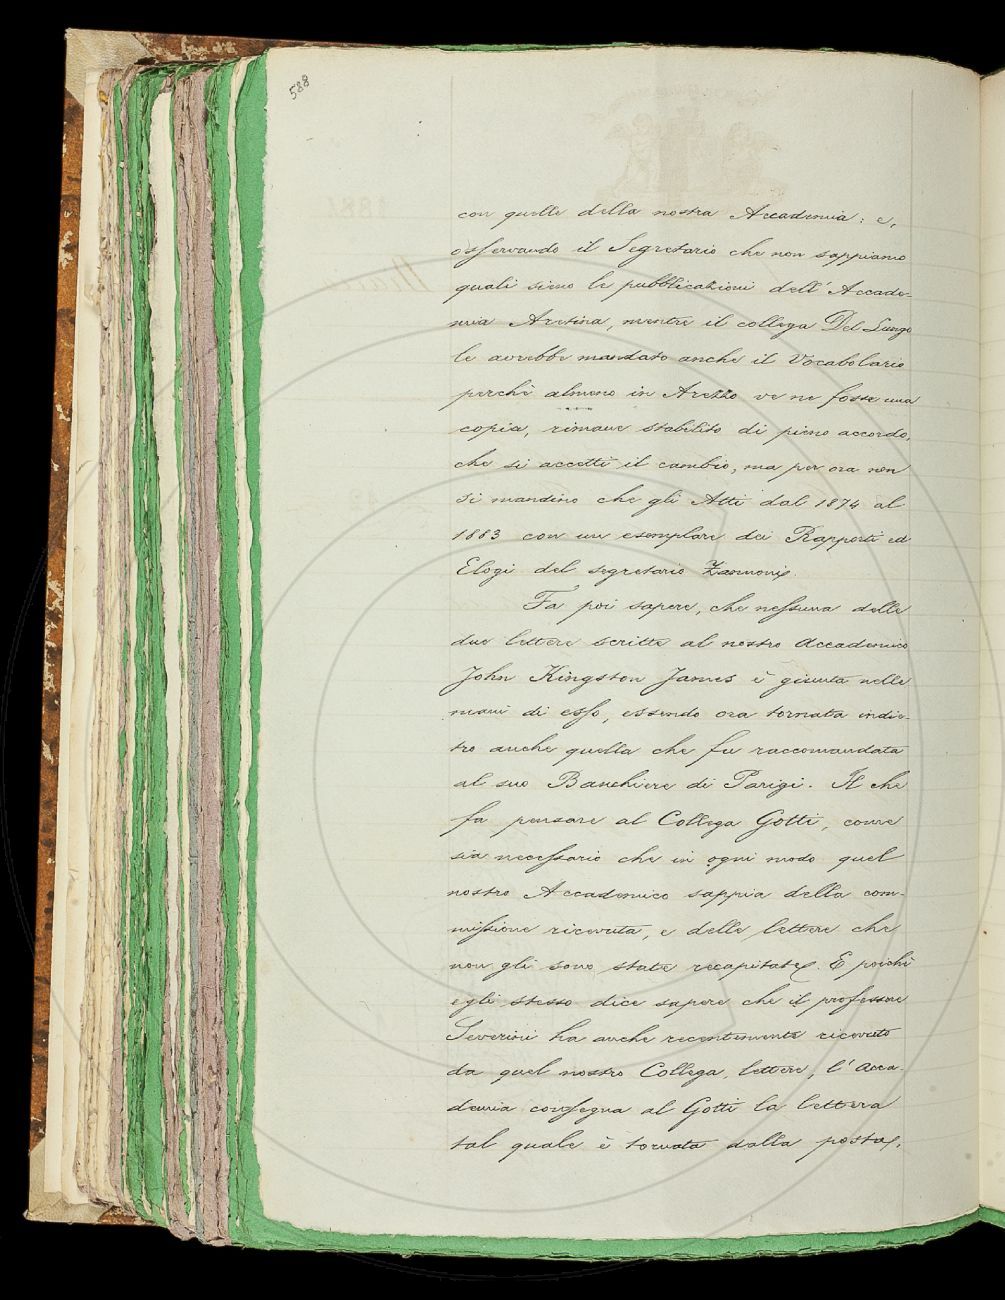 588
con quelle della nostra Accademia: e,
osservando il Segretario che non sappiamo
quali sieno le pubblicazioni dell'Accade-
mia Aretina, mentre il collega Del Lungo
le avrebbe mandato anche il Vocabolario
perchè almeno in Arezzo ve ne fosse una
copia, rimane stabilito di pieno accordo,
che si accetti il cambio, ma per ora non
si mandino che gli Atti dal 1874 al
1883 con un esemplare dei Rapporti ed
Elogi del segretario Zannoni.
Fa poi sapere, che nessuna delle
due lettere scritte al nostro Accademico
John Kingston James è giunta nelle
mani di esso, essendo ora tornata indie-
tro anche quella che fu raccomandata
al suo Banchiere di Parigi. Il che
fa pensare al Collega Gotti, come
sia necessario che in ogni modo quel
nostro Accademico sappia della com-
missione ricevuta, e delle lettere che
non gli sono state recapitate. E poichè
egli stesso dice sapere che il professore
Severini ha anche recentemente ricevuto
da quel nostro Collega, lettere, l'Acca-
demia consegna al Gotti la lettera
tal quale è tornata dalla posta,